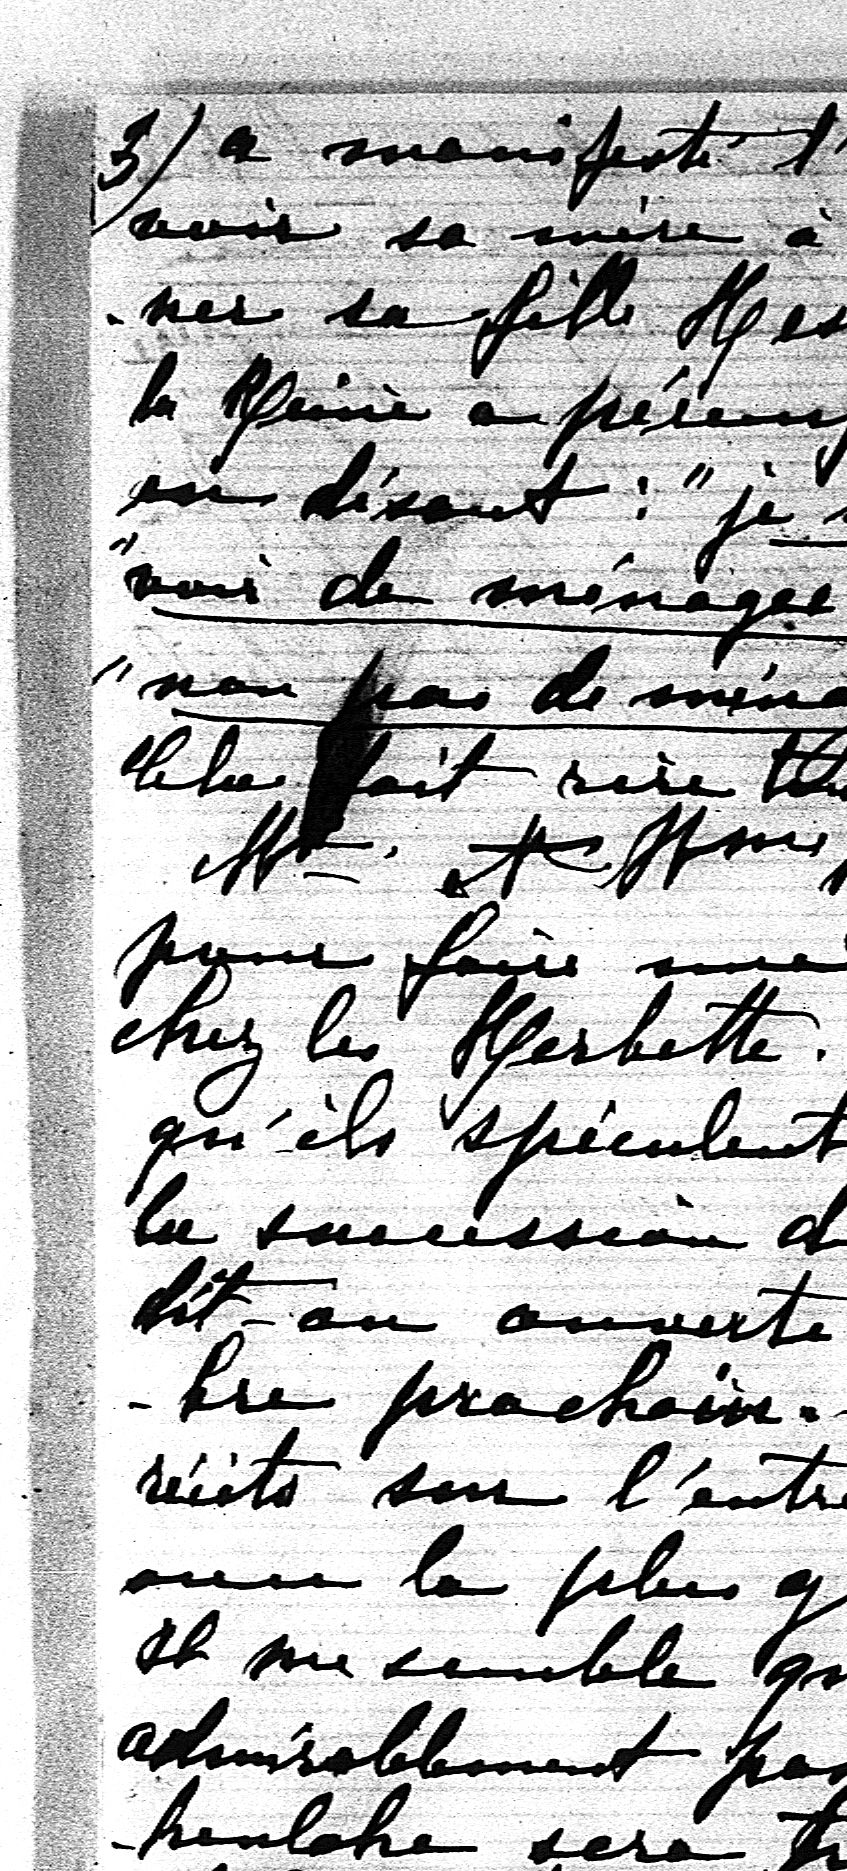 3) a manifesté l'
voir sa mère à
- ner sa fille Hes
la Reine a péremp
en disant : " je
" voir de ménagee
" non pas de ména
Cela fait rire tou
Mme.
pour faire
chez les Herbette.
qu'ils spéculent
la succession d
dit-on ouverte
- bre prochain. -
récits sur l'entre
vue la plus g
Il me semble qu
admirablement pas
- henlohe sera